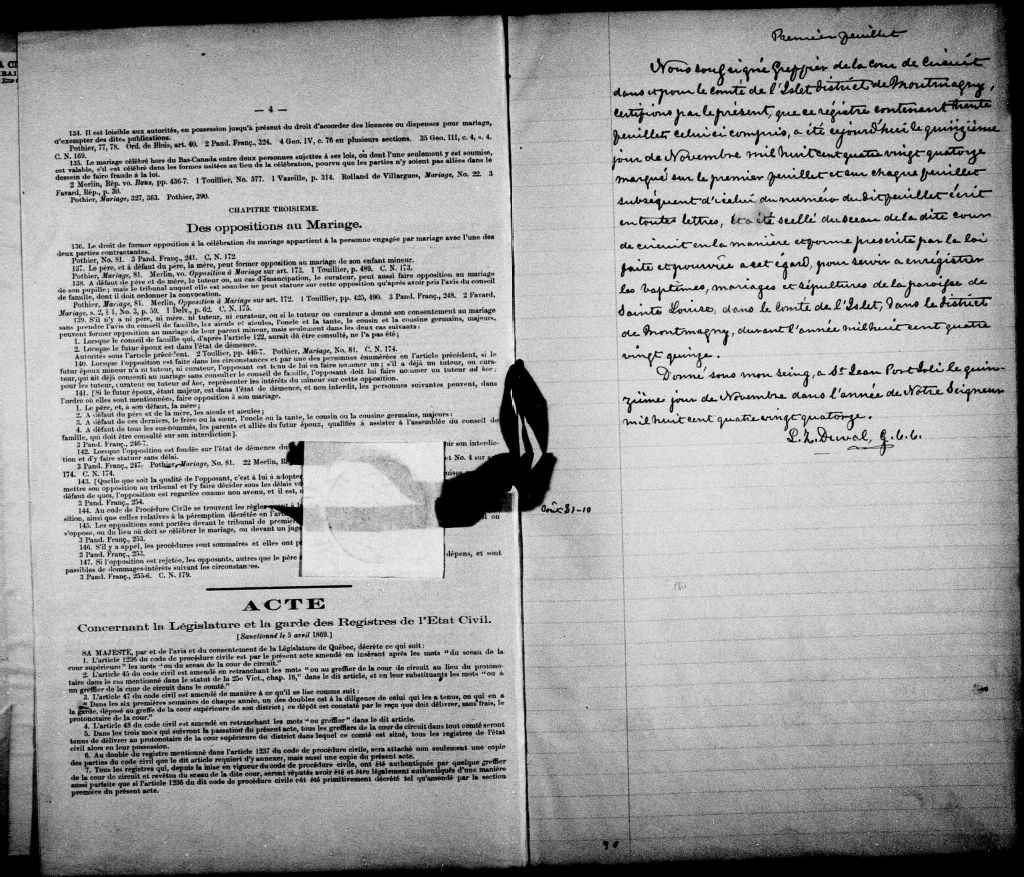 — 4 —
134. Il est loisible aux autorités, en possession jusqu'à présent du droit d'accorder des licences ou dispenses pour mariage,
d'exempter des dites publications.
Pothier, 77, 78. Ord. de Blois, art. 40. 2 Pand. Franç., 324. 4 Geo. IV, c. 76 en plusieurs sections. 35 Geo. III, c. 4, s. 4.
C. N. 169.
135. Le mariage célébré hors du Bas-Canada entre deux personnes sujettes à ses lois, ou dont l'une seulement y est soumise,
est valable, s'il est célébré dans les formes usitées au lieu de la célébration, pourvu que les parties n'y soient pas allées dans le
dessein de faire fraude à la loi.
2 Merlin, Rép. vo. Bans, pp. 436-7. 1 Touillier, No. 577. 1 Vazeille, p. 314. Rolland de Villargues, Mariage, No. 22. 3
Favard, Rép., p. 30.
Pothier, Mariage, 327, 363. Pothier, 390.
CHAPITRE TROISIEME.
Des oppositions au Mariage.
136. Le droit de former opposition à la célébration du mariage appartient à la personne engagée par mariage avec l'une des
deux parties contractantes.
Pothier, No. 81. 3 Pand. Franç., 241. C. N. 172
137. Le père, et à défaut du père, la mère, peut former opposition au mariage de son enfant mineur.
Pothier, Mariage, 81. Merlin, vo. Opposition à Mariage sur art. 173. 1 Touillier, p. 489. C. N. 173.
138. A défaut de père et de mère, le tuteur, ou, au cas d'émancipation, le curateur, peut aussi faire opposition au mariage
de son pupille; mais le tribunal auquel elle est soumise ne peut statuer sur cette opposition qu'après avoir pris l'avis du conseil
de famille, dont il doit ordonner la convocation.
Pothier, Mariage, 81. Merlin, Opposition à Mariage sur art. 172. 1 Touillier, pp. 425, 490. 3 Pand. Franç., 248. 2 Favard,
Mariage, s. 2, § 1, No. 3, p. 59. 1 Delv., p. 62. C. N. 175.
139. S'il n'y a ni père, ni mère, ni tuteur, ni curateur, ou si le tuteur ou curateur a donné son consentement au mariage
sans prendre l'avis du conseil de famille, les aïeuls et aïeules, l'oncle et la tante, le cousin et la cousine germains, majeurs,
peuvent former opposition au mariage de leur parent mineur, mais seulement dans les deux cas suivants :
1. Lorsque le conseil de famille qui, d'après l'article 122, aurait dû être consulté, ne l'a pas été ;
2. Lorsque le futur époux est dans l'état de démence.
Autorités sous l'article précédent. 2 Toullier, pp. 446-7. Pothier, Mariage, No. 81. C. N. 174.
140. Lorsque l'opposition est faite dans les circonstances et par une des personnes énumérées en l'article précédent, si le
futur époux mineur n'a ni tuteur, ni curateur, l'opposant est tenu de lui en faire nommer un ; s'il a déjà un tuteur, ou cura-
teur, qui ait déjà consenti au mariage sans consulter le conseil de famille, l'opposant doit lui faire nommer un tuteur ad hoc ;
pour les tuteur, curateur ou tuteur ad hoc, représenter les intérêts du mineur sur cette opposition.
141. [Si le futur époux, étant majeur, est dans l'état de démence, et non interdit, les personnes suivantes peuvent, dans
l'ordre où elles sont mentionnées, faire opposition à son mariage.
1. Le père, et, à son défaut, la mère ;
2. A défaut du père et de la mère, les aïeuls et aïeules ;
3. A défaut de ces derniers, le frère ou la sœur, l'oncle ou la tante, le cousin ou la cousine germains, majeurs :
4. A défaut de tous les sus-nommés, les parents et alliés du futur époux, qualifiés à assister à l'assemblée du conseil de
famille, qui doit être consulté sur son interdiction].
3 Pand. Franç., 246-7.
142. Lorsque l'opposition est fondée sur l'état de démence du
ir son interdic-
tion et d'y faire statuer sans délai.
3 Pand. Franç., 247. Pothier, Mariage, No. 81. 22 Merlin, R
et No. 4 sur
174. C. N. 174.
143. [Quelle que soit la qualité de l'opposant, c'est à lui à adopter
mettre son opposition au tribunal et l'y faire décider sous les délais
défaut de quoi, l'opposition est regardée comme non avenu, et il est,
3 Pand. Franç., 254.
144. Au code de Procédure Civile se trouvent les règles
sition, ainsi que celles relatives à la péremption décrétée en l'art
145. Les oppositions sont portées devant le tribunal de premi
s'oppose, ou du lieu où doit se célébrer le mariage, ou devant un jug
3 Pand. Franç., 253.
146. S'il y a appel, les procédures sont sommaires et elles ont
3 Pand. Franç., 253.
147. Si l'opposition est rejetée, les opposants, autres que le père
dépens, et sont
passibles de dommages-intérêts suivant les circonstances.
3 Pand. Franç., 255-6. C. N. 179.
ACTE
Concernant la Législature et la garde des Registres de l'Etat Civil.
[Sanctionné le 5 avril 1869.]
SA MAJESTE, par et de l'avis et du consentement de la Législature de Québec, décrète ce qui suit :
1. L'article 1236 du code de procédure civile est par le présent acte amendé en insérant après les mots "du sceau de la
cour supérieure" les mots "ou du sceau de la cour de circuit."
2. L'article 45 du code civil est amendé en retranchant les mots "ou au greffier de la cour de circuit au lieu du protono-
taire dans le cas mentionné dans le statut de la 25e Vict., chap. 16," dans le dit article, et en leur substituants les mots "ou à
un greffier de la cour de circuit dans le comté."
3. L'article 47 du code civil est amendé de manière à ce qu'il se lise comme suit :
"Dans les six premières semaines de chaque année, un des doubles est à la diligence de celui qui les a tenus, ou qui en a
la garde, déposé au greffe de la cour supérieure de son district ; ce dépôt est constaté par le reçu que doit délivrer, sans frais, le
protonotaire de la cour."
4. L'article 48 du code civil est amendé en retranchant les mots "ou greffier" dans le dit article.
5. Dans les trois mois qui suivront la passation du présent acte, tous les greffiers de la cour de circuit dans tout comté seront
tenus de délivrer au protonotaire de la cour supérieure du district dans lequel ce comté est situé, tous les registres de l'état
civil alors en leur possession.
6. Au double du registre mentionné dans l'article 1237 du code de procédure civile, sera attaché non seulement une copie
des parties du code civil que le dit article requiert d'y annexer, mais aussi une copie du présent acte.
7. Tous les registres qui, depuis la mise en vigueur du code de procédure civile, ont été authentiqués par quelque greffier
de la cour de circuit et revêtus du sceau de la dite cour, seront réputés avoir été et être légalement authentiqués d'une manière
aussi parfaite que si l'article 1236 du dit code de procédure civile eût été primitivement décrété tel qu'amendé par la section
première du présent acte.
Premier feuillet
Nous soussigné Greffier de la cour de Circuit
dans et pour le comté de l'Islet District de Montmagny,
certifions par le présent, que ce régistre contenant trente
feuillets celui ci compris, a été cejourd'hui le quinzième
jour de Novembre mil huit cent quatre vingt quatorze
marqué sur le premier feuillet et sur chaque feuillet
subséquent d'icelui du numéro du dit feuillet écrit
en toutes lettres, et a été scellé du sceau de la dite cour
de circuit en la manière et forme prescrite par la loi
faite et pourvue a cet égard, pour servir a enregistrer
les baptêmes, mariages et sépultures de la paroisse de
Sainte Louise, dans le comté de l'Islet, dans le District
de Montmagny, durant l'année mil huit cent quatre
vingt quinze.
Donné sous mon seing, a St Jean Port Joli le quin-
zième jour de Novembre dans l'année de Notre Seigneur
mil huit cent quatre vingt quatorze.
L. Z. Duval, G. C. C.